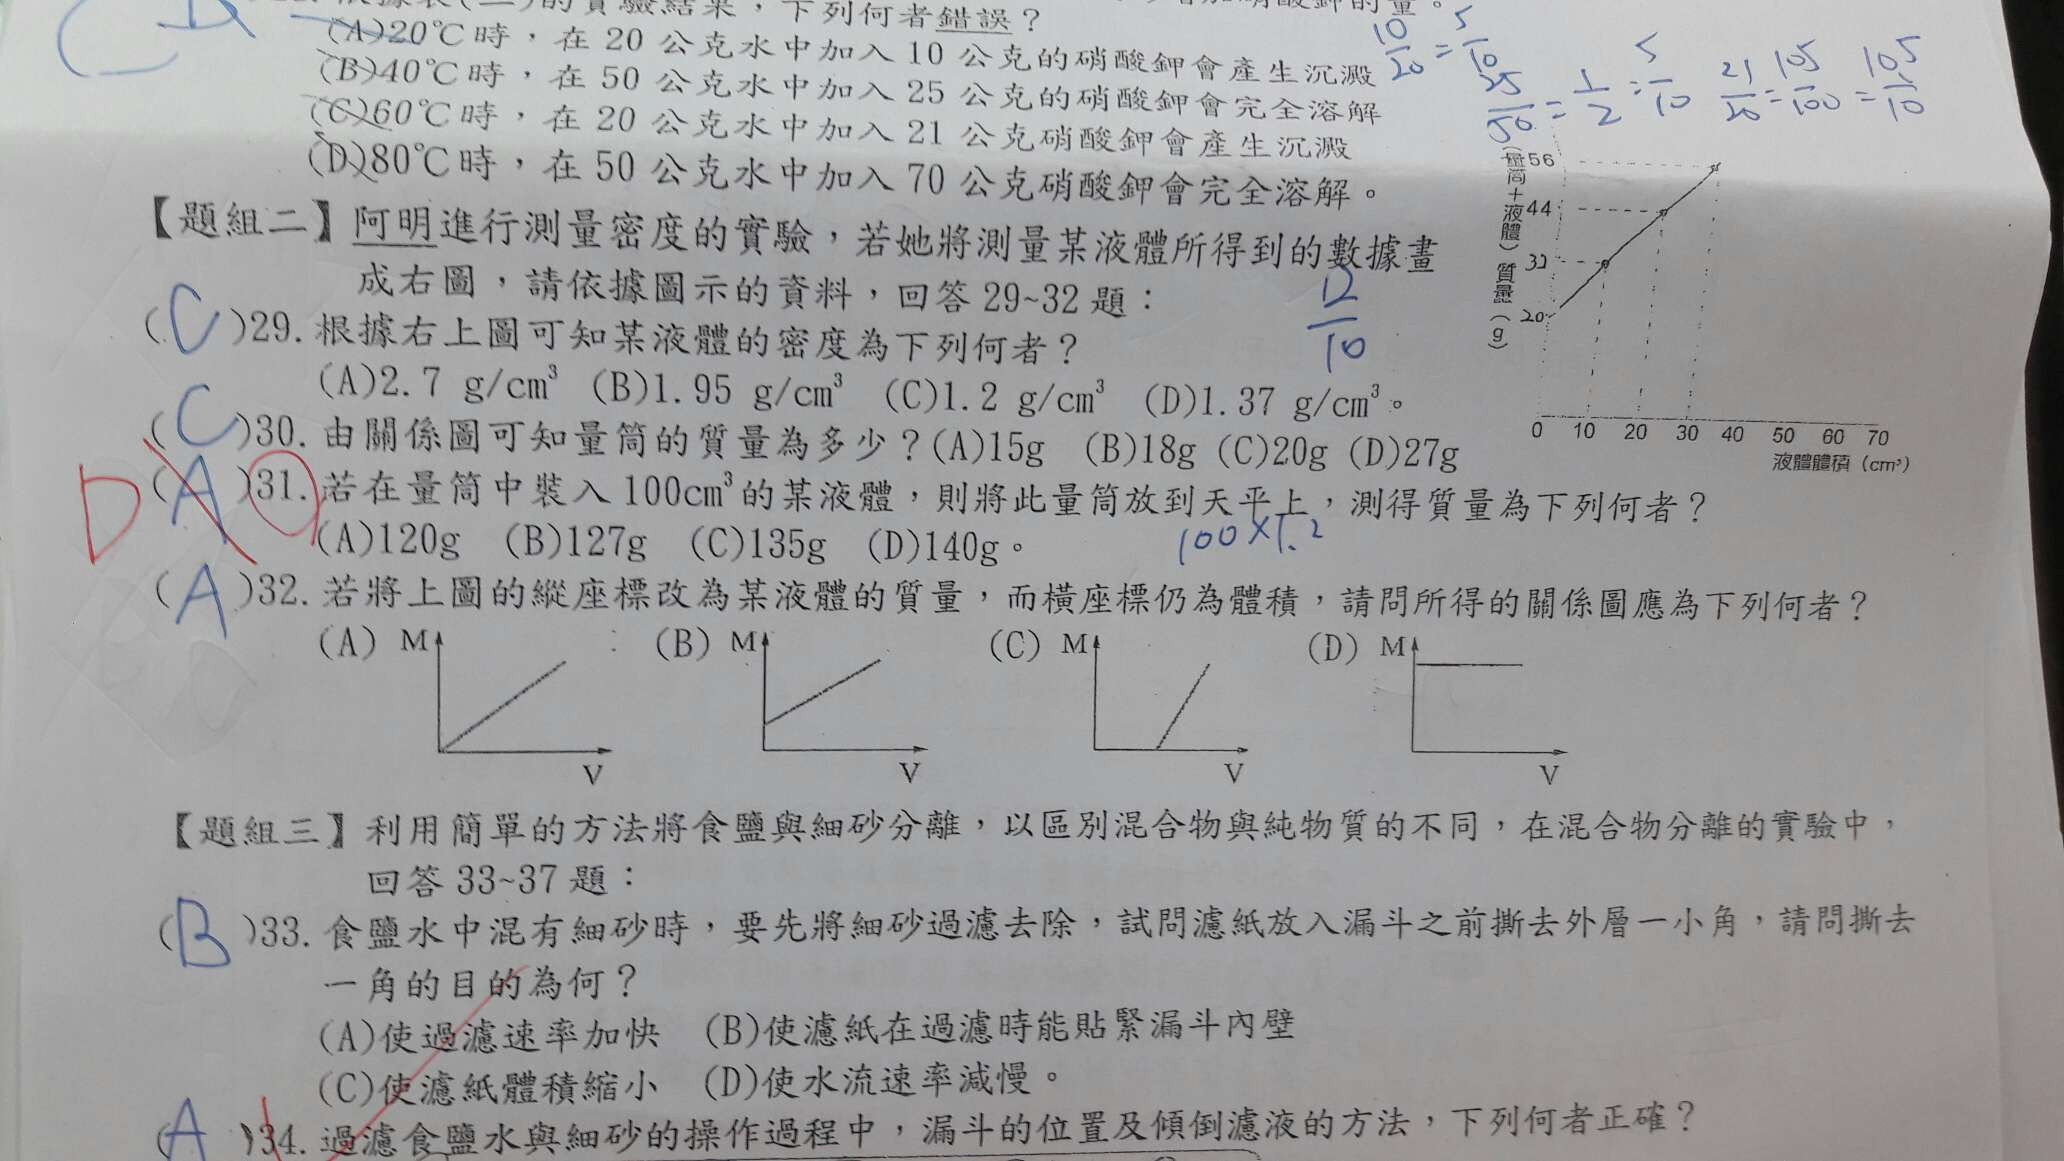 下列何者錯誤？
(A)20℃時，在 20 公克水中加入 10 公克的硝酸鉀會產生沉澱
(B)40℃時，在 50 公克水中加入 25 公克的硝酸鉀會完全溶解
(C)60℃時，在 20 公克水中加入 21 公克硝酸鉀會產生沉澱
(D)80℃時，在 50 公克水中加入 70 公克硝酸鉀會完全溶解。
10/20 = 5/10
25/50 = 1/2 = 5/10
21/20 = 105/100 = 10.5/10
【題組二】阿明進行測量密度的實驗，若她將測量某液體所得到的數據畫
成右圖，請依據圖示的資料，回答 29~32 題：
(量筒＋液體)質量(g)
56
44
32
20
0 10 20 30 40 50 60 70
液體體積 (cm³)
(C)29. 根據右上圖可知某液體的密度為下列何者？
12/10
(A)2.7 g/cm³ (B)1.95 g/cm³ (C)1.2 g/cm³ (D)1.37 g/cm³。
(C)30. 由關係圖可知量筒的質量為多少？(A)15g (B)18g (C)20g (D)27g
D (A)31. 若在量筒中裝入 100cm³的某液體，則將此量筒放到天平上，測得質量為下列何者？
(A)120g (B)127g (C)135g (D)140g。
100×1.2
(A)32. 若將上圖的縱座標改為某液體的質量，而橫座標仍為體積，請問所得的關係圖應為下列何者？
(A) M V (B) M V (C) M V (D) M V
【題組三】利用簡單的方法將食鹽與細砂分離，以區別混合物與純物質的不同，在混合物分離的實驗中，
回答 33~37 題：
(B)33. 食鹽水中混有細砂時，要先將細砂過濾去除，試問濾紙放入漏斗之前撕去外層一小角，請問撕去
一角的目的為何？
(A)使過濾速率加快 (B)使濾紙在過濾時能貼緊漏斗內壁
(C)使濾紙體積縮小 (D)使水流速率減慢。
(A)34. 過濾食鹽水與細砂的操作過程中，漏斗的位置及傾倒濾液的方法，下列何者正確？